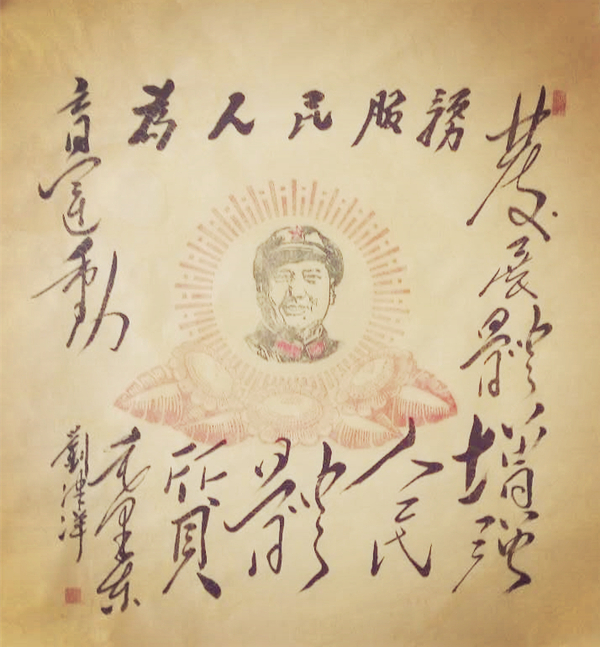 為人民服務
發展體
育運動
增强
人民
體
質
毛澤東
劉津洋